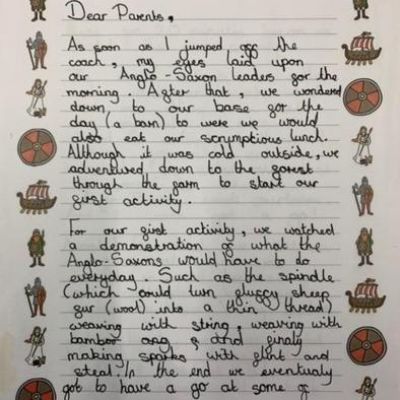 Dear Parents,
As soon as I jumped off the
coach, my eyes laid upon
our Anglo-Saxon leaders for the
morning. After that, we wondered
down to our base for the
day (a barn) to were we would
also eat our scrumptious lunch.
Although it was cold outside, we
adventured down to the forest
through the farm to start our
first activity.
For our first activity, we watched
a demonstration of what the
Anglo-Saxons would have to do
everyday. Such as the spindle
(which could turn fluffy sheep
fur (wool) into a thin thread)
weaving with string, weaving with
bamboo and finaly
making sparks, with flint and
steal. In the end we eventualy
got to have a go at some of